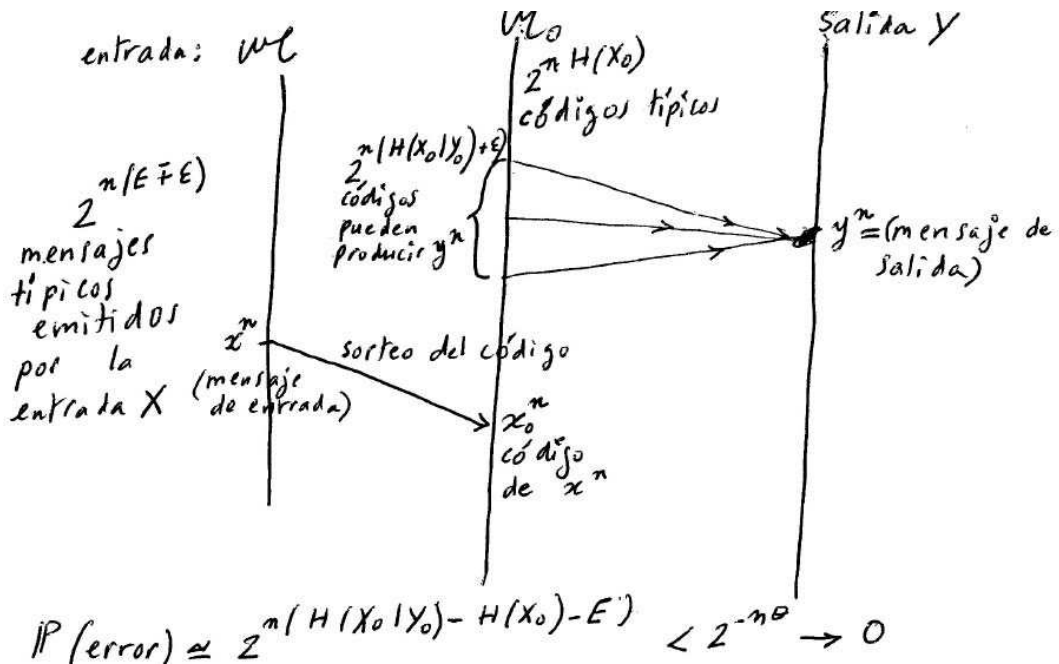 entrada: 𝓜
𝓜₀
Salida Y
2^{n H(X₀)}
códigos típicos
2^{n(H(X₀|Y₀)+ε)}
códigos
pueden
producir yⁿ
2^{n(E∓ε)}
mensajes
típicos
emitidos
por la
entrada X
xⁿ
(mensaje
de entrada)
sorteo del código
x₀ⁿ
código
de xⁿ
yⁿ=(mensaje de
salida)
ℙ(error) ≃ 2^{n(H(X₀|Y₀)-H(X₀)-E)} < 2^{-nθ} → 0